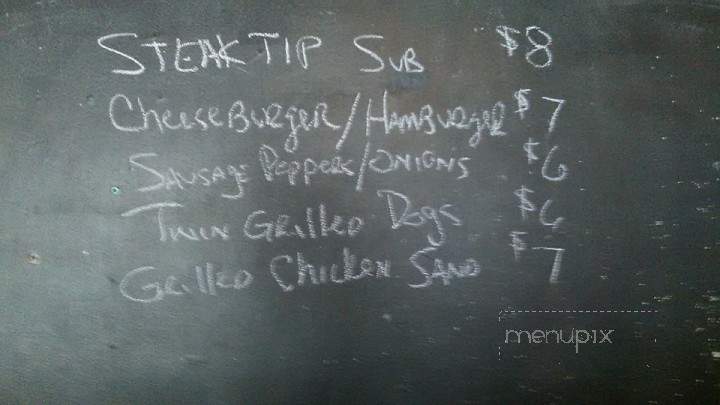 STEAK TIP SUB $8
CHEESEBURGER/HAMBURGER $7
SAUSAGE PEPPERS/ONIONS $6
TWIN GRILLED DOGS $6
GRILLED CHICKEN SAND $7
menupix